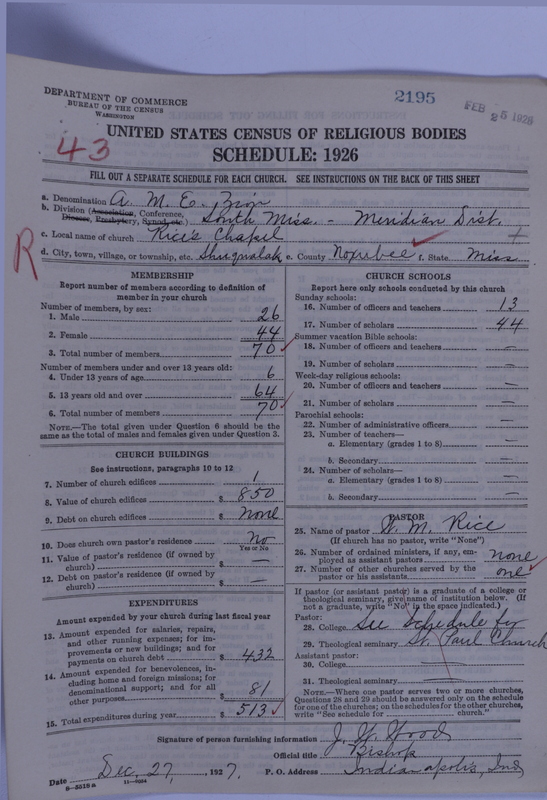 DEPARTMENT OF COMMERCE
BUREAU OF THE CENSUS
WASHINGTON
2195
FEB 25 1928
43
UNITED STATES CENSUS OF RELIGIOUS BODIES
SCHEDULE: 1926
FILL OUT A SEPARATE SCHEDULE FOR EACH CHURCH. SEE INSTRUCTIONS ON THE BACK OF THIS SHEET
a. Denomination A. M. E. Zion
b. Division (Association, Conference, Diocese, Presbytery, Synod, etc.) South Miss. - Meridian Dist.
c. Local name of church Rice's Chapel
R
d. City, town, village, or township, etc. Shuqualak e. County Noxubee f. State Miss
MEMBERSHIP
Report number of members according to definition of
member in your church
Number of members, by sex:
1. Male 26
2. Female 44
3. Total number of members 70
Number of members under and over 13 years old:
4. Under 13 years of age 6
5. 13 years old and over 64
6. Total number of members 70
NOTE.—The total given under Question 6 should be the
same as the total of males and females given under Question 3.
CHURCH BUILDINGS
See instructions, paragraphs 10 to 12
7. Number of church edifices 1
8. Value of church edifices $ 850
9. Debt on church edifices $ None
10. Does church own pastor's residence? No
Yes or No
11. Value of pastor's residence (if owned by
church) $ —
12. Debt on pastor's residence (if owned by
church) $ —
EXPENDITURES
Amount expended by your church during last fiscal year
13. Amount expended for salaries, repairs,
and other running expenses; for im-
provements or new buildings; and for
payments on church debt $ 432
14. Amount expended for benevolences, in-
cluding home and foreign missions; for
denominational support; and for all
other purposes $ 81
15. Total expenditures during year $ 513
CHURCH SCHOOLS
Report here only schools conducted by this church
Sunday schools:
16. Number of officers and teachers 13
17. Number of scholars 44
Summer vacation Bible schools:
18. Number of officers and teachers —
19. Number of scholars —
Week-day religious schools:
20. Number of officers and teachers —
21. Number of scholars —
Parochial schools:
22. Number of administrative officers —
23. Number of teachers—
a. Elementary (grades 1 to 8) —
b. Secondary —
24. Number of scholars—
a. Elementary (grades 1 to 8) —
b. Secondary —
PASTOR
25. Name of pastor W. M. Rice
(If church has no pastor, write "None")
26. Number of ordained ministers, if any, em-
ployed as assistant pastors none
27. Number of other churches served by the
pastor or his assistants one
If pastor (or assistant pastor) is a graduate of a college or
theological seminary, give name of institution below. (If
not a graduate, write "No" in the space indicated.)
Pastor:
28. College See Schedule for
29. Theological seminary St. Paul Church
Assistant pastor:
30. College
31. Theological seminary
NOTE.—Where one pastor serves two or more churches,
Questions 28 and 29 should be answered only on the schedule
for one of the churches; on the schedules for the other churches,
write "See schedule for ________ church."
Signature of person furnishing information J. W. Wood
Official title Bishop
Date Dec. 27, 1927. P. O. Address Indianapolis, Ind
8-5518a 11-9094